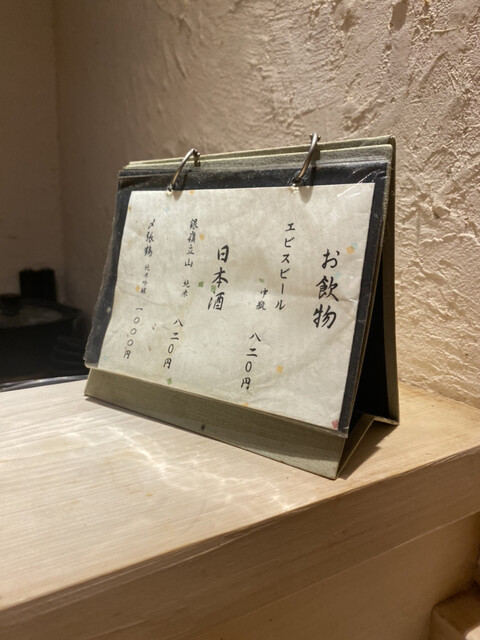 お飲物
エビスビール 中瓶 八二〇円
日本酒
銀嶺立山 純米 八二〇円
〆張鶴 純米吟醸 一〇〇〇円